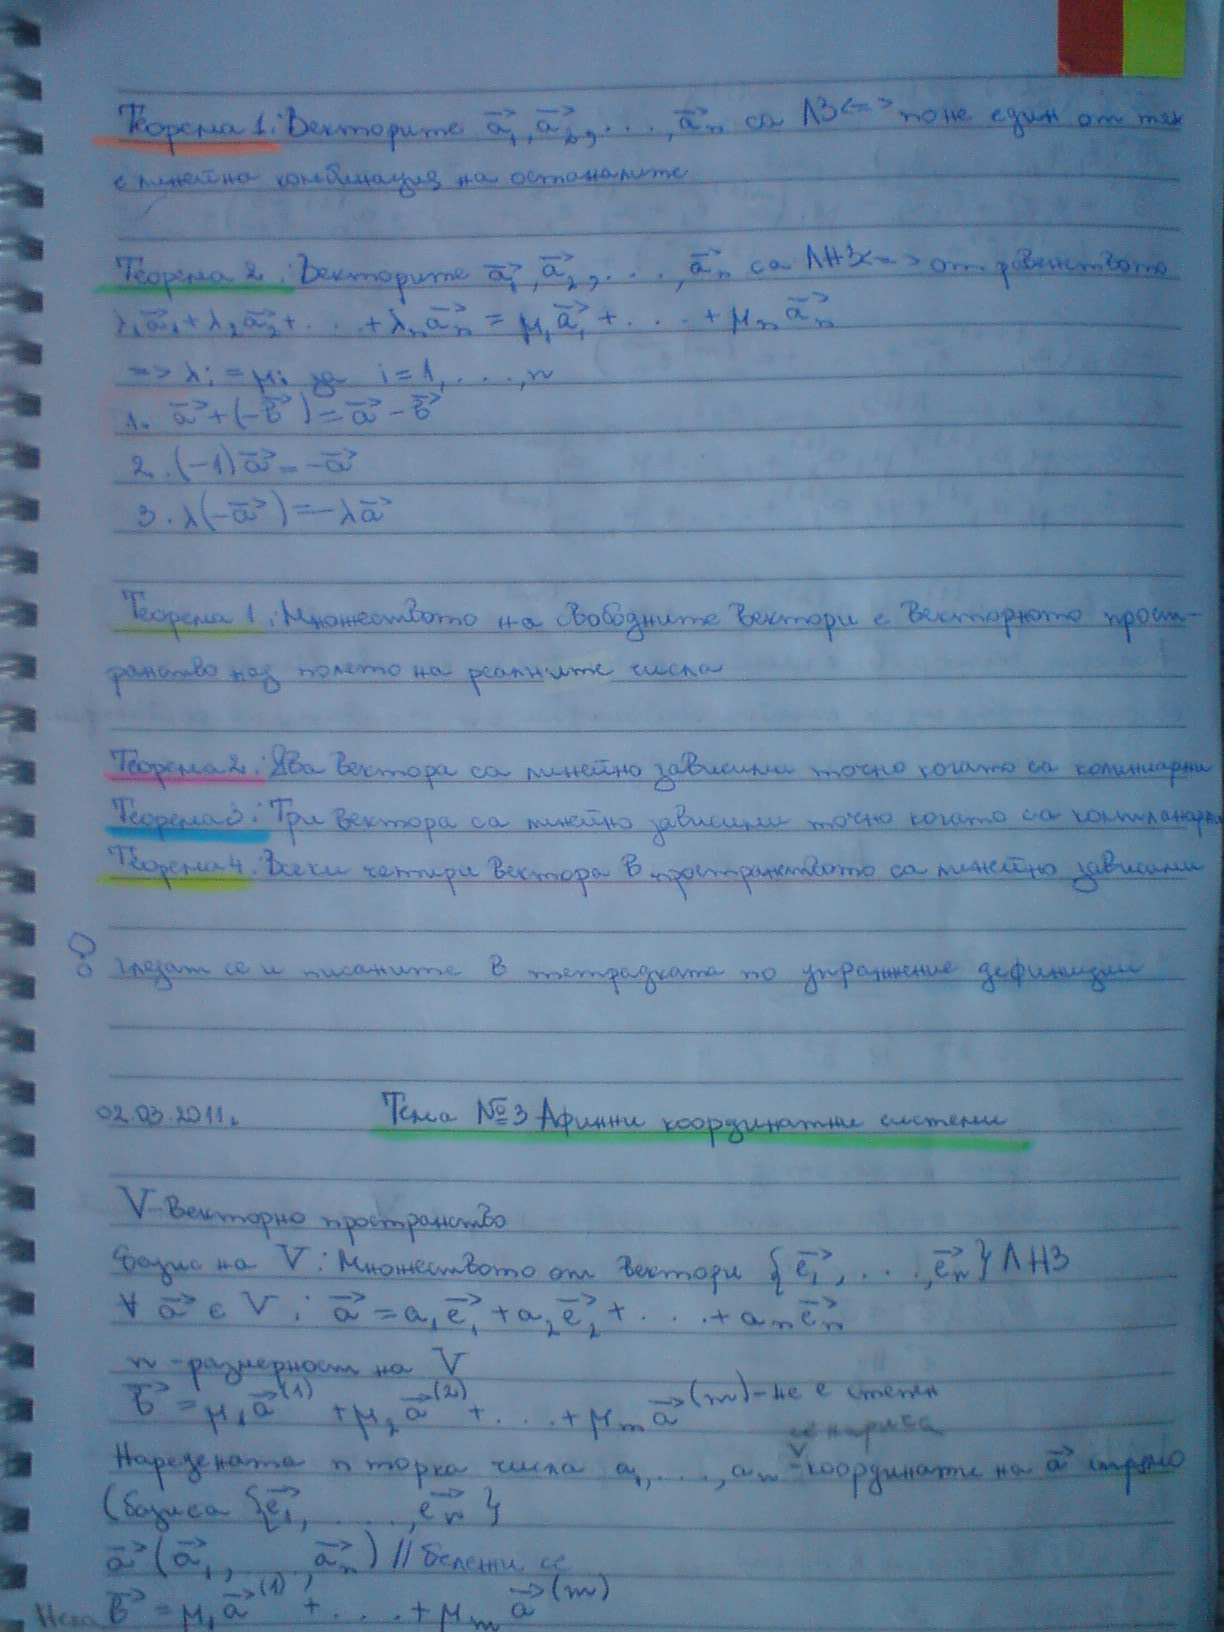 Теорема 1: Векторите a⃗₁, a⃗₂, . . . , a⃗ₙ са ЛЗ <=> поне един от тях
е линейна комбинация на останалите
Теорема 2: Векторите a⃗₁, a⃗₂, . . . , a⃗ₙ са ЛНЗ <=> от равенството
λ₁a⃗₁ + λ₂a⃗₂ + . . . + λₙa⃗ₙ = μ₁a⃗₁ + . . . + μₙa⃗ₙ
=> λᵢ = μᵢ за i = 1, . . . , n
1. a⃗ + (-b⃗) = a⃗ - b⃗
2. (-1)a⃗ = -a⃗
3. λ(-a⃗) = -λa⃗
Теорема 1: Множеството на свободните вектори е векторното прост-
ранство над полето на реалните числа
Теорема 2: Два вектора са линейно зависими точно когато са колинеарни
Теорема 3: Три вектора са линейно зависими точно когато са компланарни
Теорема 4: Всеки четири вектора в пространството са линейно зависими
Гледат се и писаните в тетрадката по упражнение дефиниции
02.03.2011г. Тема №3 Афинни координатни системи
V - векторно пространство
Базис на V: Множеството от вектори {e⃗₁, . . . , e⃗ₙ} ЛНЗ
∀ a⃗ ∈ V : a⃗ = a₁e⃗₁ + a₂e⃗₂ + . . . + aₙe⃗ₙ
n - размерност на V
b⃗ = μ₁a⃗⁽¹⁾ + μ₂a⃗⁽²⁾ + . . . + μₘa⃗⁽ᵐ⁾ - не е степен
се нарича
Наредената n торка числа a₁, . . . , aₙ - координати на a⃗ спрямо
(базиса {e⃗₁, . . . . , e⃗ₙ}
a⃗ (a⃗₁, . . . , a⃗ₙ) // бележи се
Нека b⃗ = μ₁a⃗⁽¹⁾ + . . . + μₘa⃗⁽ᵐ⁾